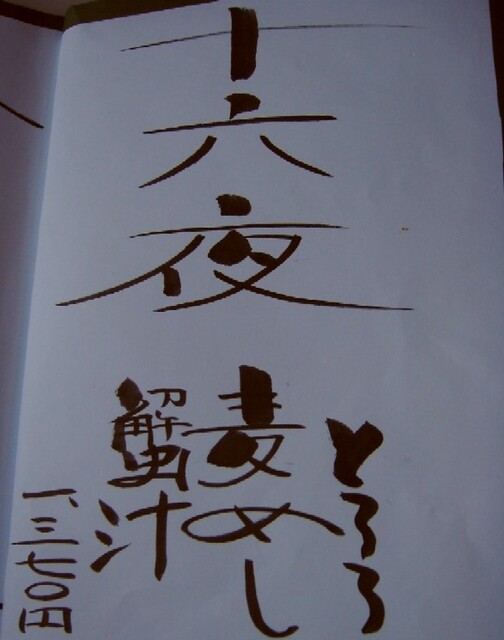 十六夜
とろろ
麦めし
蟹汁
一、三七〇円